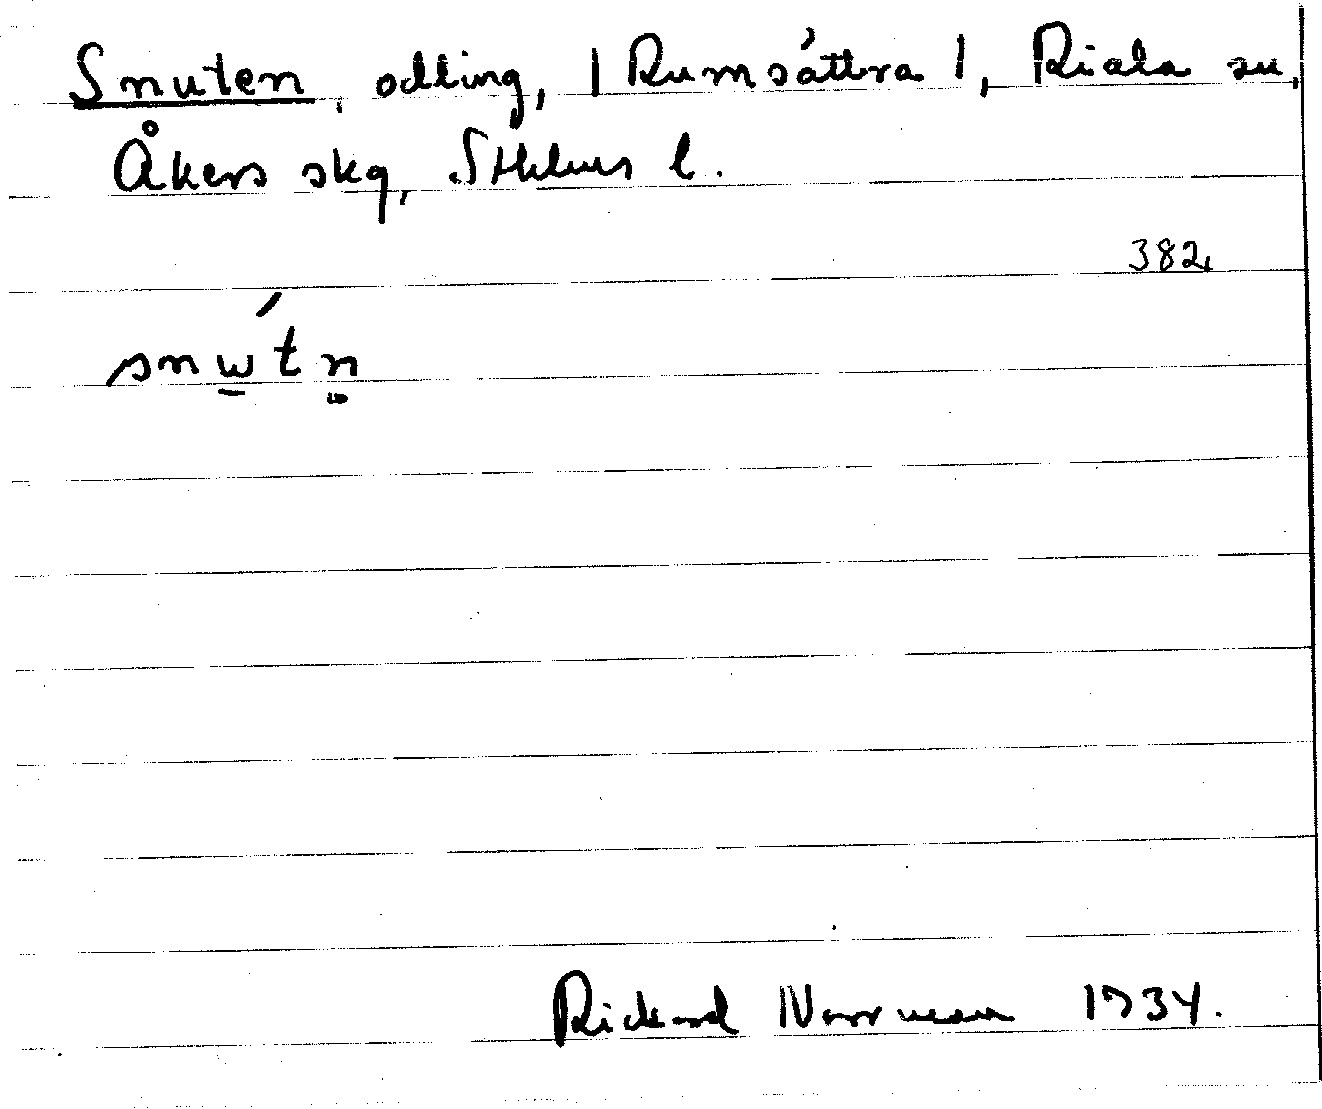 Snuten, odling, | Rumsättra |, Riala sn,
Åkers skg, Sthlms l.
382,
snw̲´tn̥
Rickard Norrman 1934.